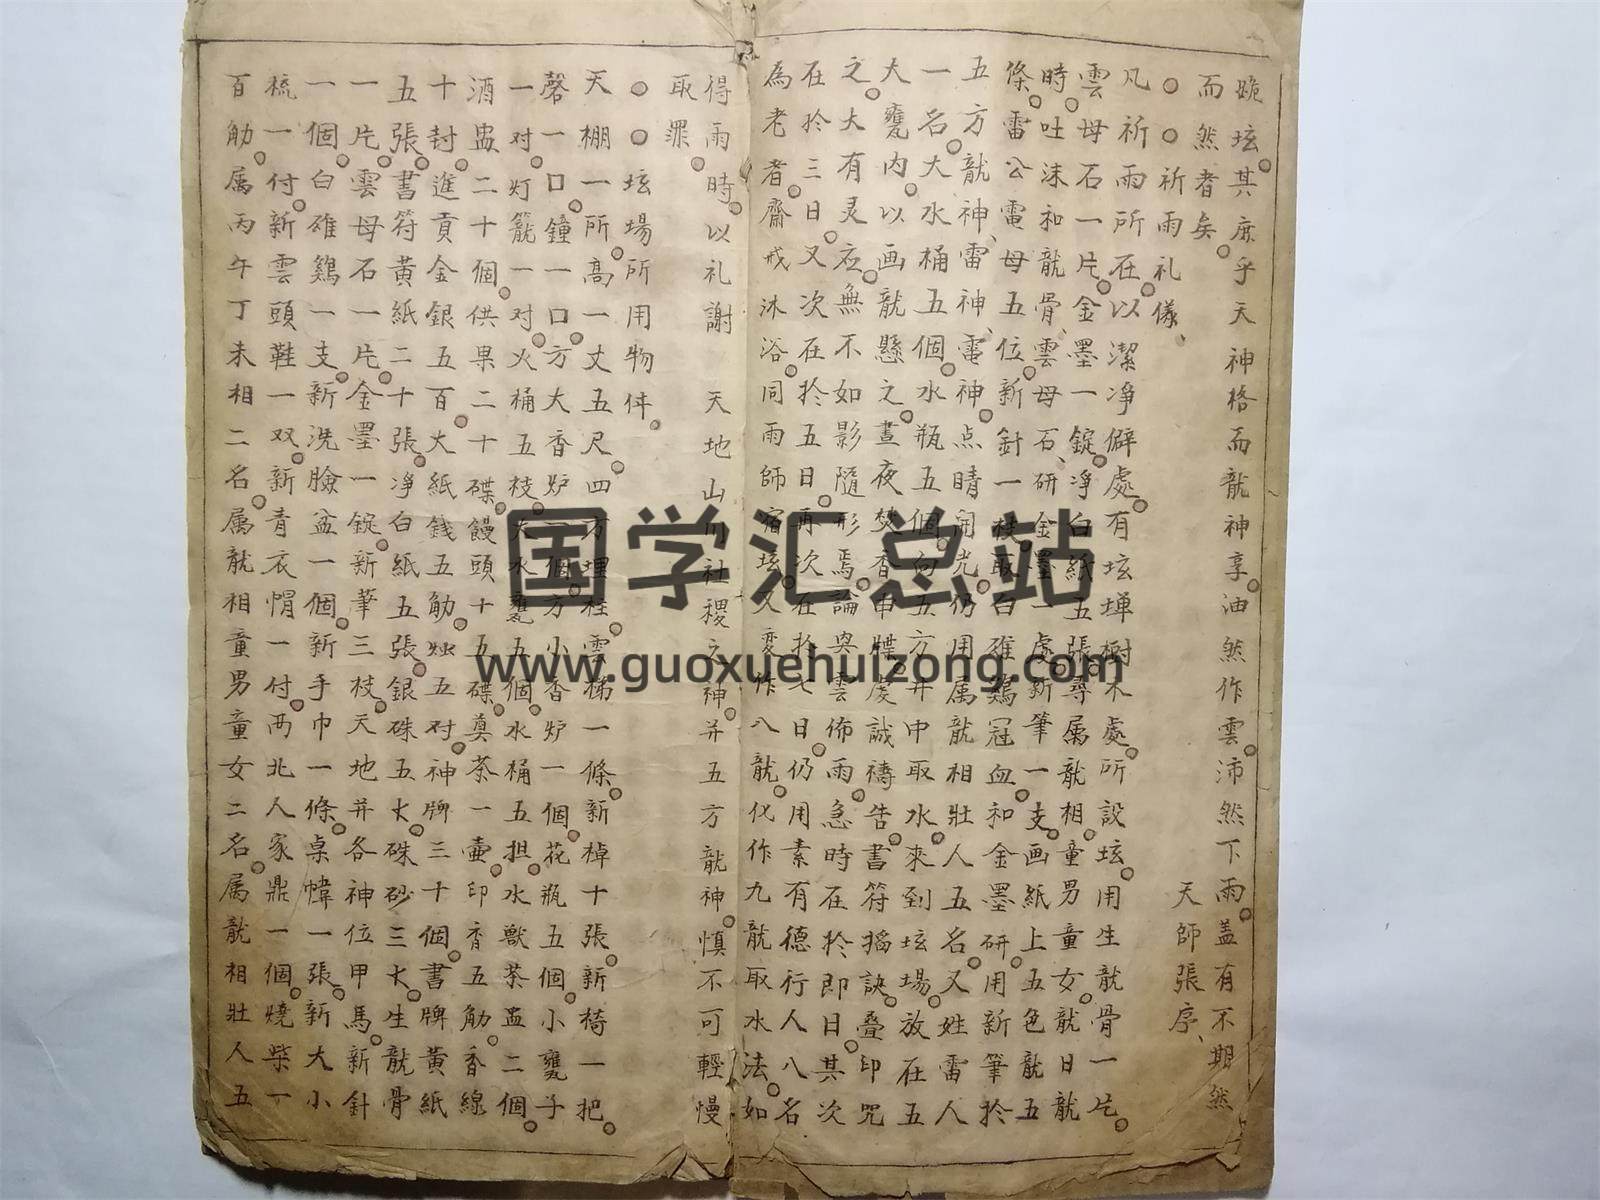 跪垓其庶乎天神格而龍神享油然作雲沛然下雨盖有不期然
而然者矣 天師張序
祈雨礼儀
凡祈雨所在以潔净僻處有垓墠樹木處所設垓用生龍骨一片
雲母石一片金墨一錠净白紙五張尋属龍相童男童女龍日龍
時吐沫和龍骨雲母石研金墨一處新筆一支画紙上五色龍五
條雷公電母五位新針一枝取白雄鷄冠血和金墨研用新筆於
五方龍神雷神電神点睛開光仍用属龍相壯人五名又姓雷人
一名大水桶五個水瓶五個向五方井中取水來到垓場放在五
大甕内以画龍懸之晝夜焚香申牒虔誠禱告書符搯訣叠印咒
之大有灵应無不如影隨形焉論與雲佈雨急時在於即日其次
在於三日又次在於五日再次在於七日仍用素有德行人八名
為老者齋戒沐浴同雨師宿垓又変作八龍化作九龍取水法如
得雨時以礼謝 天地山川社稷之神并五方龍神慎不可輕慢
取罪
垓場所用物件
天棚一所高一丈五尺四方埋柱雲梯一條新棹十張新椅一把
磬一口鐘一口方大香炉一個方小香炉一個花瓶五個小甕子
一对灯籠一对火桶五枝大水甕五個水桶五担水獸茶盅二個
酒盅二十個供果二十碟饅頭十五碟奠茶一壷印香五觔香線
十封進貢金銀五百大紙錢五觔烛五对神牌三十個書牌黄紙
五張書符黄紙二十張净白紙五張銀硃五大硃砂三大生龍骨
一片雲母石一片金墨一錠新筆三枝天地并各神位甲馬新針
一個白雄鷄一支新洗臉盆一個新手巾一條桌幃一張新大小
梳一付新雲頭鞋一双新青衣帽一付两北人家鼎一個燒柴一
百觔属丙午丁未相二名属龍相童男童女二名属龍相壯人五
国学汇总站
www.guoxuehuizong.com